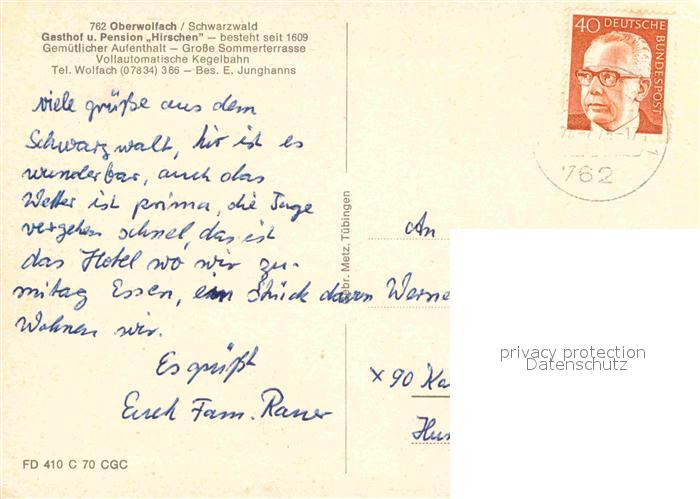 762 Oberwolfach / Schwarzwald
Gasthof u. Pension „Hirschen" – besteht seit 1609
Gemütlicher Aufenthalt – Große Sommerterrasse
Vollautomatische Kegelbahn
Tel. Wolfach (07834) 366 – Bes. E. Junghanns
viele grüße aus dem
Schwarzwalt, hir ist es
wunderbar, auch das
Wetter ist prima, die Tage
vergehen schnel, das ist
das Hotel wo wir zu-
mitag Essen, ein Stück davon
Wohnen wir.
Es grüßt
Euch Fam.
FD 410 C 70 CGC
ebr. Metz, Tübingen
40 DEUTSCHE
BUNDESPOST
762
An
Werne
x 90 Ka
Hu
privacy protection
Datenschutz